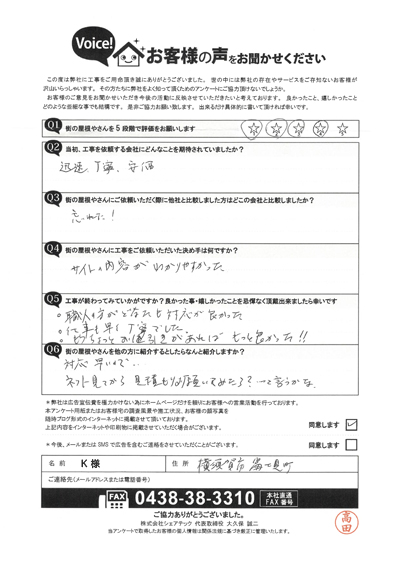 Voice!
お客様の声をお聞かせください
この度は弊社に工事をご用命頂き誠にありがとうございました。世の中には弊社の存在やサービスをご存知ないお客様が
沢山いらっしゃいます。その方たちに弊社をよく知って頂くためのアンケートにご協力頂けないでしょうか。
お客様のご意見をお聞かせいただき今後の活動に反映させていただきたいと考えております。良かったこと、嬉しかったこと
どのような些細な事でも結構です。是非ご協力お願い致します。出来るだけ具体的に書いて頂ければ幸いです。
Q1 街の屋根やさんを5段階で評価をお願いします ☆ ☆ ☆ ☆ ☆
Q2 当初、工事を依頼する会社にどんなことを期待されていましたか?
迅速、丁寧、安価
Q3 街の屋根やさんにご依頼いただく際に他社と比較しました方はどこの会社と比較しましたか?
忘れた!
Q4 街の屋根やさんに工事をご依頼いただいた決め手は何ですか?
サイトの内容がわかりやすかった
Q5 工事が終わってみていかがですか?良かった事・嬉しかったことを忌憚なく頂戴出来ましたら幸いです
○職人の方がどなたも対応が良かった
○仕事も早く丁寧でした。
○もうちょっとお値引きがあれば もっと良かった!!
Q6 街の屋根やさんを他の方に紹介するとしたらなんと紹介しますか?
対応早いので、
ネット見てから見積もりお願いしてみたら?…と言うかな。
*弊社は広告宣伝費を極力かけない為にホームページだけを頼りにお客様への営業活動を行っております。
本アンケート用紙またはお客様宅の調査風景や施工状況、お客様の顔写真を
随時ブログ形式のインターネットに掲載させて頂いております。
上記内容をインターネットや印刷物に掲載させていただく場合がございます。 同意します ✓
*今後、メールまたはSMSで広告を含むご連絡をさせていただくことがございます。 同意します
名前 K様 住所 横須賀市富士見町
ご連絡先(メールアドレスまたは電話番号)
FAX 0438-38-3310 本社直通 FAX番号
ご協力ありがとうございました。
株式会社シェアテック 代表取締役 大久保 誠二
当アンケートで取得したお客様の個人情報は関係法規に基づき厳正に管理いたします。
高田